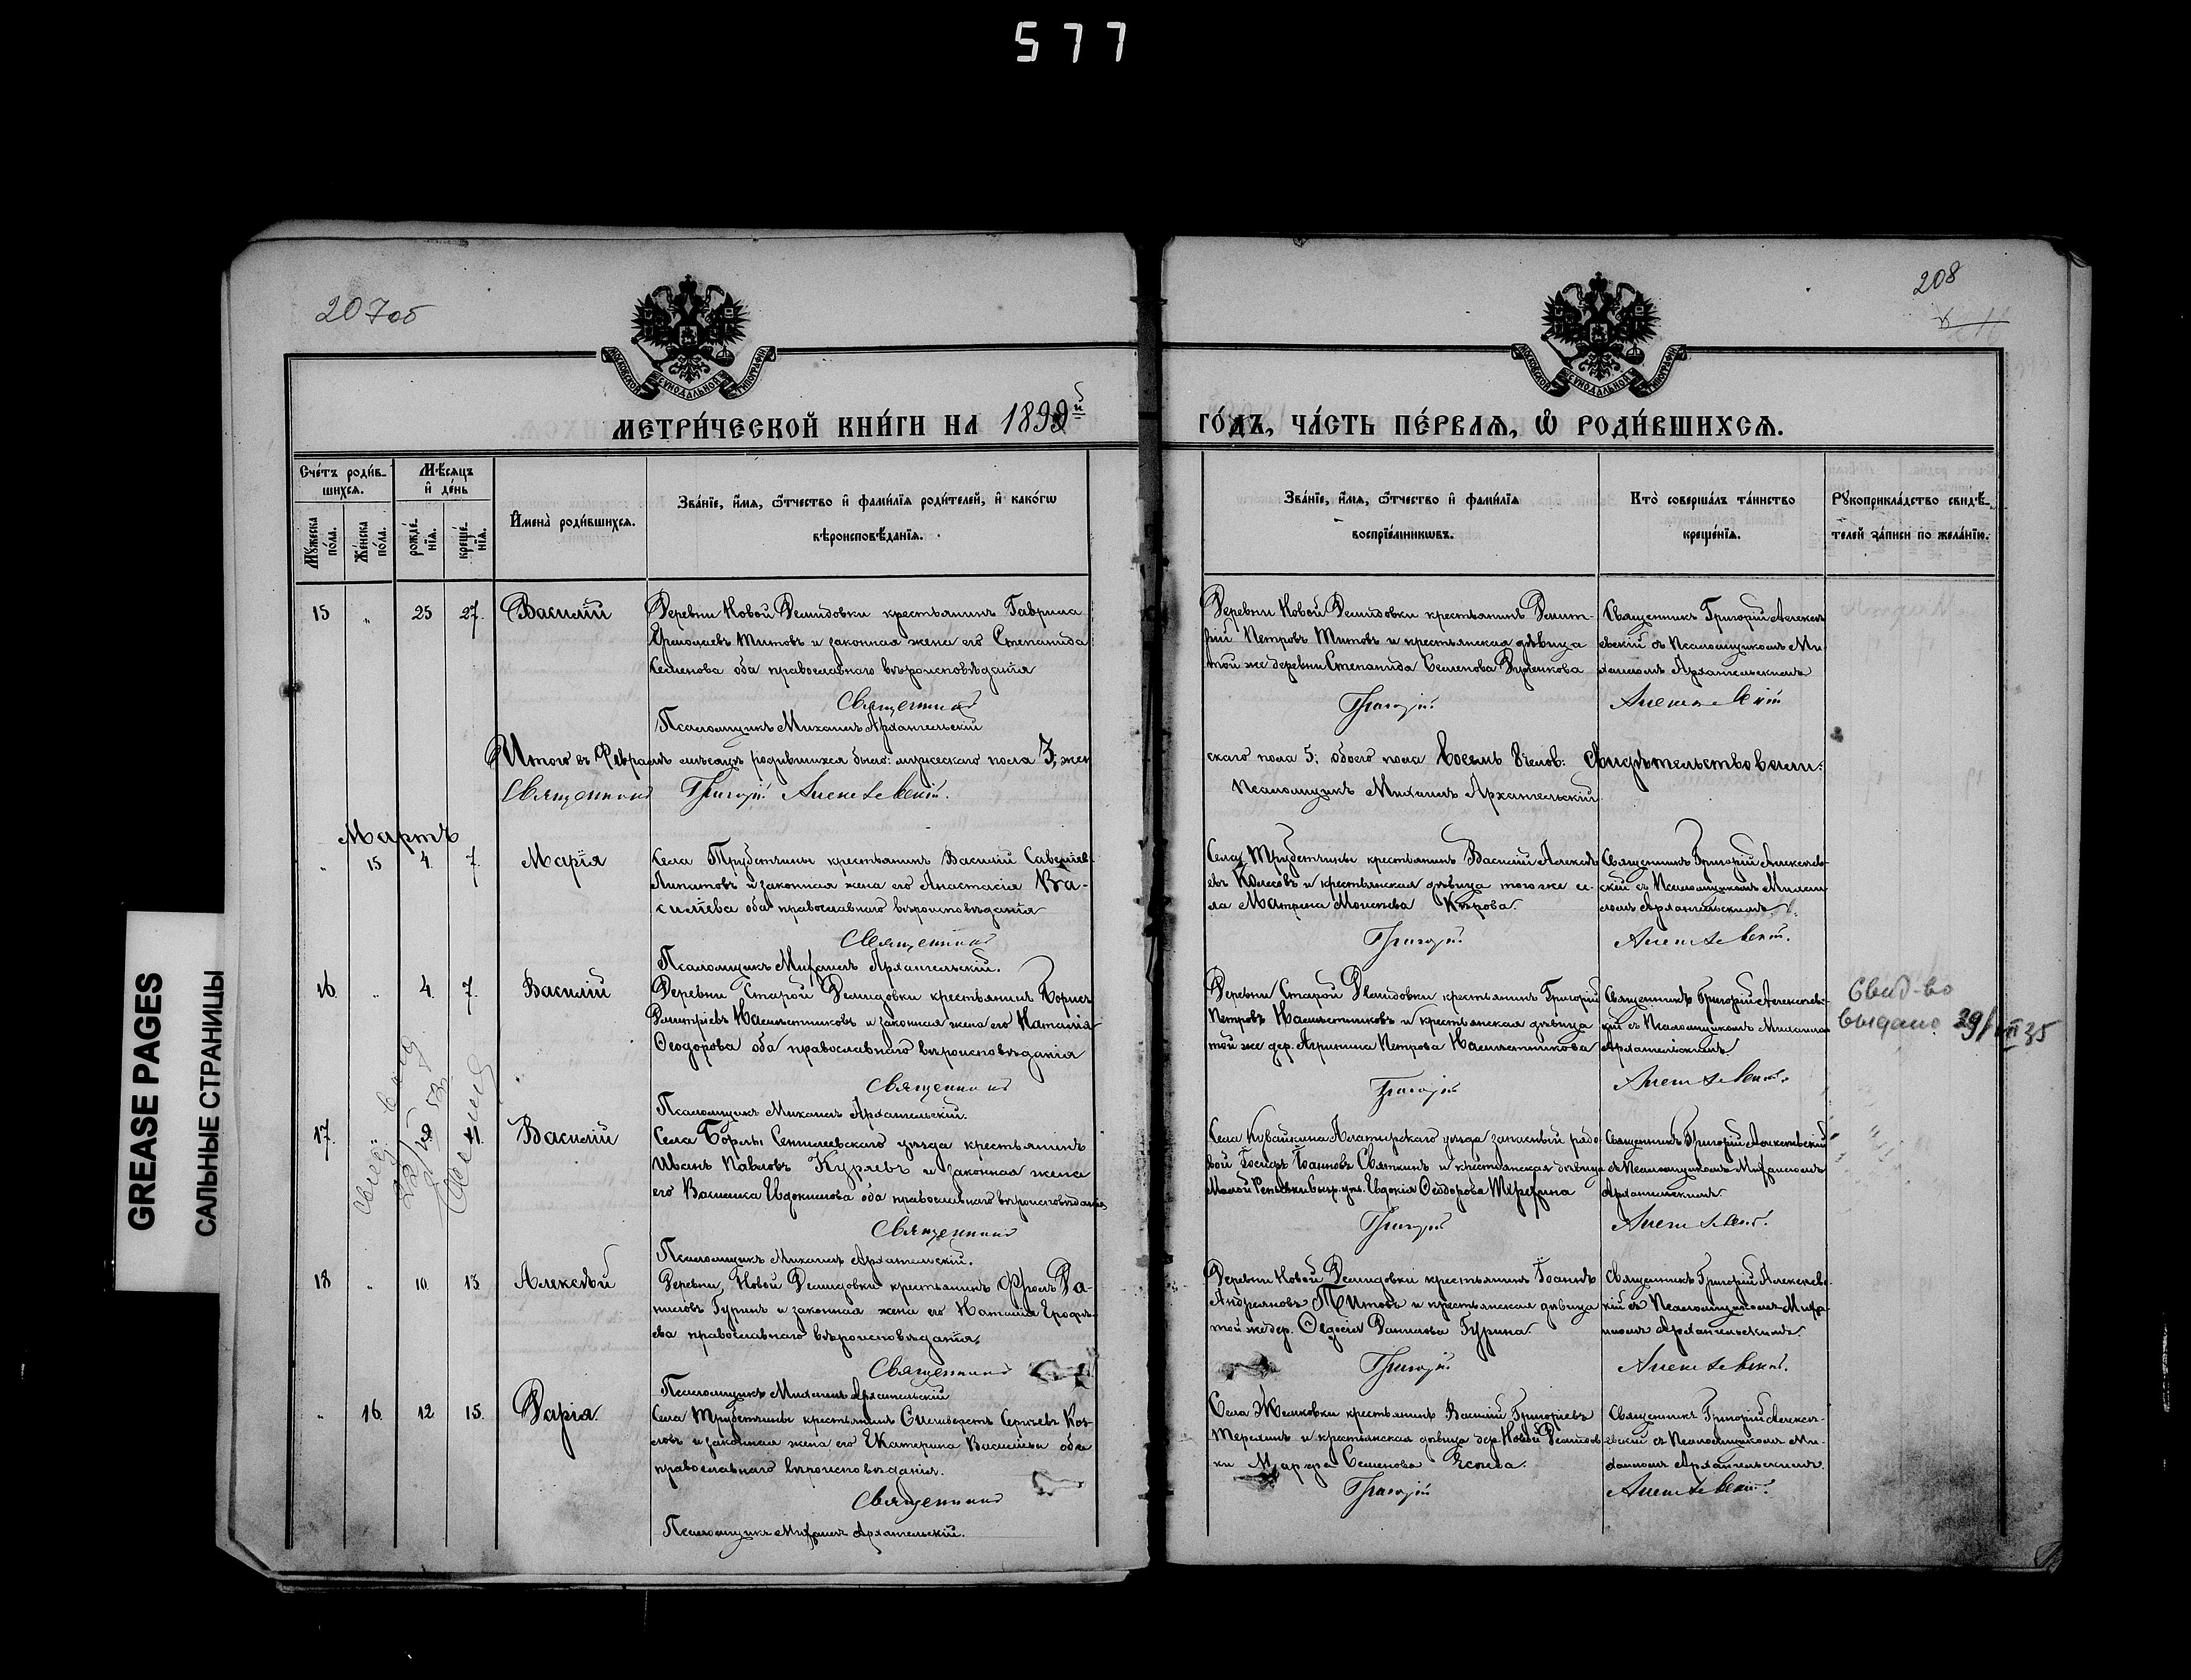 577
207об
208
МОСКОВСКОЙ СѴНОДАЛЬНОЙ ТИПОГРАФІИ
МОСКОВСКОЙ СѴНОДАЛЬНОЙ ТИПОГРАФІИ
МЕТРИ́ЧЕСКОЙ КНИ́ГИ НА 1899й ГО́ДЪ, ЧА́СТЬ ПЕ́РВАѦ, Ѽ РОДИ́ВШИХСѦ.
Сче́тъ роди́в-
шихсѧ.
Мѣ́сѧцъ
и҆ де́нь
Мꙋжеска
по́ла.
Же́нска
по́ла.
рожде́-
нїѧ.
креще́-
нїѧ.
И҆мена̀ роди́вшихсѧ.
Зва́нїе, и҆́мѧ, ѻ҆́тчество и҆ фами́лїѧ роди́телей, и҆ како́гѡ
вѣроисповѣ́данїѧ.
Зва́нїе, и҆́мѧ, ѻ҆́тчество и҆ фами́лїѧ
воспрїе́мникѡвъ.
Кто̀ соверша́лъ та́инство
креще́нїѧ.
Рꙋкоприкла́дство свидѣ́-
телей за́писи по жела́нїю.
15 " 25 27. Василій
Деревни Новой Демидовки крестьянинъ Гаврила
Титовъ и законная жена его Степанида
Семенова оба православнаго вѣроисповѣданія
Священникъ
Псаломщикъ Михаилъ Архангельскій
Деревни Новой Демидовки крестьянинъ Димит-
рій Петровъ Титовъ и крестьянская дѣвица
той же деревни Степанида Семенова
Григорій
Священникъ Григорій Алексѣ-
евскій съ Псаломщикомъ Ми-
хаиломъ Архангельскимъ
Алексѣевскій
Итого въ Февралѣ мѣсяцѣ родившихся было: мужескаго пола 3, жен
скаго пола 5; обоего пола восемь 8 челов: Свидѣтельствовали:
Священникъ Григорій Алексѣевскій.
Псаломщикъ Михаилъ Архангельскій
Мартъ
" 15 4. 7. Марія
Села Трубетчины крестьянинъ Василій Савельев
Липатовъ и законная жена его Анастасія Ва-
силіева оба православнаго вѣроисповѣданія
Священникъ
Псаломщикъ Михаилъ Архангельскій.
Села Трубетчины крестьянинъ Василій Алексѣ
евъ Колесовъ и крестьянская дѣвица того же се-
ла Матрена Моисеева Кирова.
Григорій
Священникъ Григорій Алексѣев-
скій съ Псаломщикомъ Михаи-
ломъ Архангельскимъ.
Алексѣевскій.
16 " 4. 7. Василій
Деревни Старой Демидовки крестьянинъ Борисъ
Дмитріевъ Намѣстниковъ и законная жена его Наталія
Ѳеодорова оба православнаго вѣроисповѣданія
Священникъ
Псаломщикъ Михаилъ Архангельскій.
Деревни Старой Демидовки крестьянинъ Григорій
Петровъ Намѣстниковъ и крестьянская дѣвица
той же дер. Агрипина Петрова Намѣстникова
Григорій
Священникъ Григорій Алексѣевс-
кій съ Псаломщикомъ Михаиломъ
Архангельскимъ.
Алексѣевскій.
Свид-во
выдано 29/VIII 35
17. " Василій
Села Борлы Сенгилеевскаго уѣзда крестьянинъ
Иванъ Павловъ Куряевъ и законная жена
его Василиса Евдокимова оба православнаго вѣроисповѣданія
Священникъ
Псаломщикъ Михаилъ Архангельскій.
Села Кувайкина Алатырскаго уѣзда запасный рядо
вой Іосифъ Іоанновъ Святкинъ и крестьянская дѣвица
Евдокія Ѳеодорова
Григорій
Священникъ Григорій Алексѣевскій
съ Псаломщикомъ Михаиломъ
Архангельскимъ.
Алексѣевскій.
18 " 10. 13 Алексѣй
Деревни Новой Демидовки крестьянинъ Фролъ Да-
ниловъ Гуринъ и законная жена его Наталія Ерофѣ-
ева православнаго вѣроисповѣданія.
Священникъ
Псаломщикъ Михаилъ Архангельскій
Деревни Новой Демидовки крестьянинъ Іоаннъ
Андреяновъ Титовъ и крестьянская дѣвица
той же дер. Ѳедосія Данилова Гурина.
Григорій
Священникъ Григорій Алексѣевс-
кій съ Псаломщикомъ Миха-
иломъ Архангельскимъ.
Алексѣевскій.
" 16. 12 15. Дарія
Села Трубетчины крестьянинъ Сильверстъ Сергѣевъ Коз-
ловъ и законная жена его Екатерина Васильева оба
православнаго вѣроисповѣданія.
Священникъ
Псаломщикъ Михаилъ Архангельскій.
Села Жемковки крестьянинъ Василій Григорьевъ
Терехинъ и крестьянская дѣвица дер. Новой Демидов
ки Марфа Семенова
Григорій
Священникъ Григорій Алексѣ-
евскій съ Псаломщикомъ Ми-
хаиломъ Архангельскимъ.
Алексѣевскій.
GREASE PAGES
САЛЬНЫЕ СТРАНИЦЫ